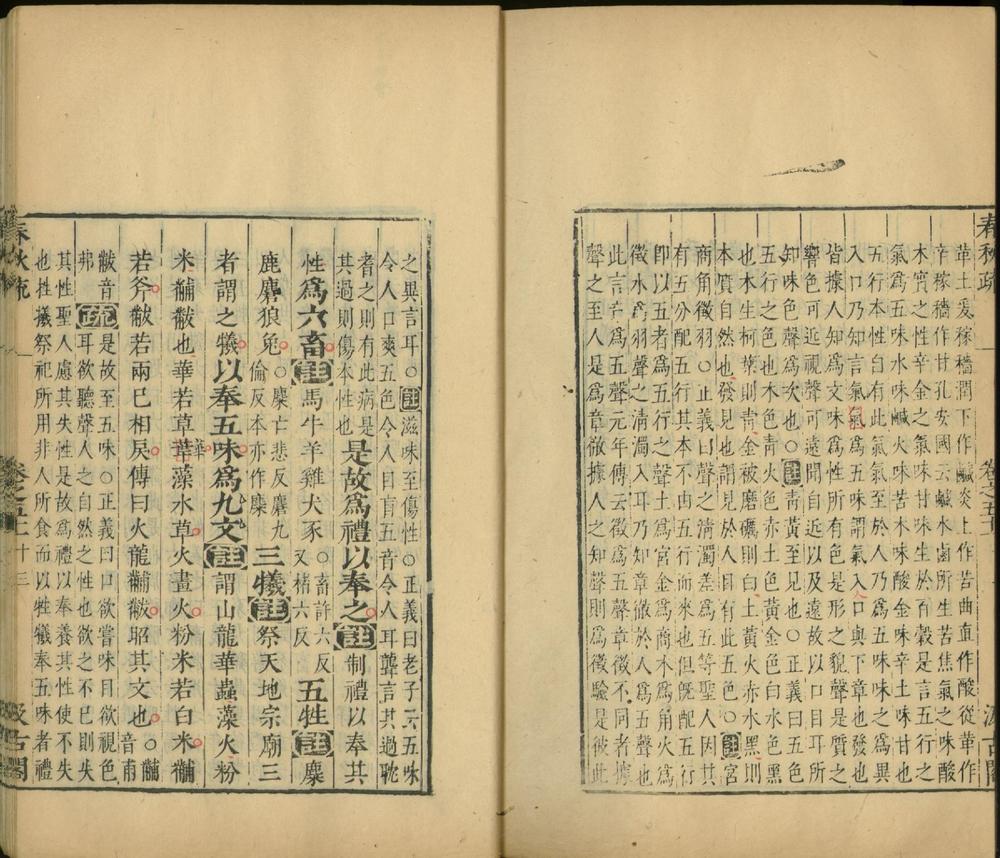 春秋疏
卷之五十一
汲古閣
革土爰稼穡潤下作鹹炎上作苦曲直作酸從革作
辛稼穡作甘孔安國云鹹水鹵所生苦焦氣之味酸
木實之性辛金之氣味甘味生於百穀是言五行之
氣爲五味水味鹹火味苦木味酸金味辛土味甘也
五行本性自有此氣氣至於人乃爲五味味之爲異
入口乃知言氣氣爲五味謂氣入人口與下章之發也
皆據人知爲文味爲性所有色是形之貌聲是質之
響色可近視聲可遠聞自近以及遠故以口目耳所
知味色聲爲次也○註青黃至見也○正義曰五色
五行之色也木色青火色赤土色黃金色白水色黑
也木生柯葉則青金被磨礪則白土黃火赤水黑則
本質自然也發見也謂見於人目有此五色○註宮
商角徵羽○正義曰聲之清濁差爲五等聖人因其
有五分配五行其本不由五行而來也但旣配五行
即以五者爲五行之聲土爲宮金爲商木爲角火爲
徵水爲羽聲之清濁入耳乃知章徹於人爲五聲也
此言章爲五聲元年傳云徵爲五聲章徵不同者據
聲之至人是爲章徹據人之知聲則爲徵驗是彼此
之異言耳○註滋味至傷性○正義曰老子云五味
令人口爽五色令人目盲五音令人耳聾言其過耽
者之則有此病是
其過則傷本性也
是故爲禮以奉之註制禮以奉其
性爲六畜註馬牛羊雞犬豕
○畜許六反
又楮六反
五牲註麋
鹿麏狼兔
○麋亡悲反麏九
倫反本亦作麇
三犧註祭天地宗廟三
者謂之犧以奉五味爲九文註謂山龍華蟲藻火粉
米黼黻也華若草華藻水草火畫火粉米若白米黼
華
若斧黻若兩已相戾傳曰火龍黼黻昭其文也
○黼
音甫
黻音
弗
疏
是故至五味○正義曰口欲嘗味目欲視色
耳欲聽聲人之自然之性也欲之不已則失
其性聖人慮其失性是故爲禮以奉養其性使不失
也牲犧祭祀所用非人所食而以牲犧奉五味者禮
春秋疏
卷之五十一
十三
汲古閣